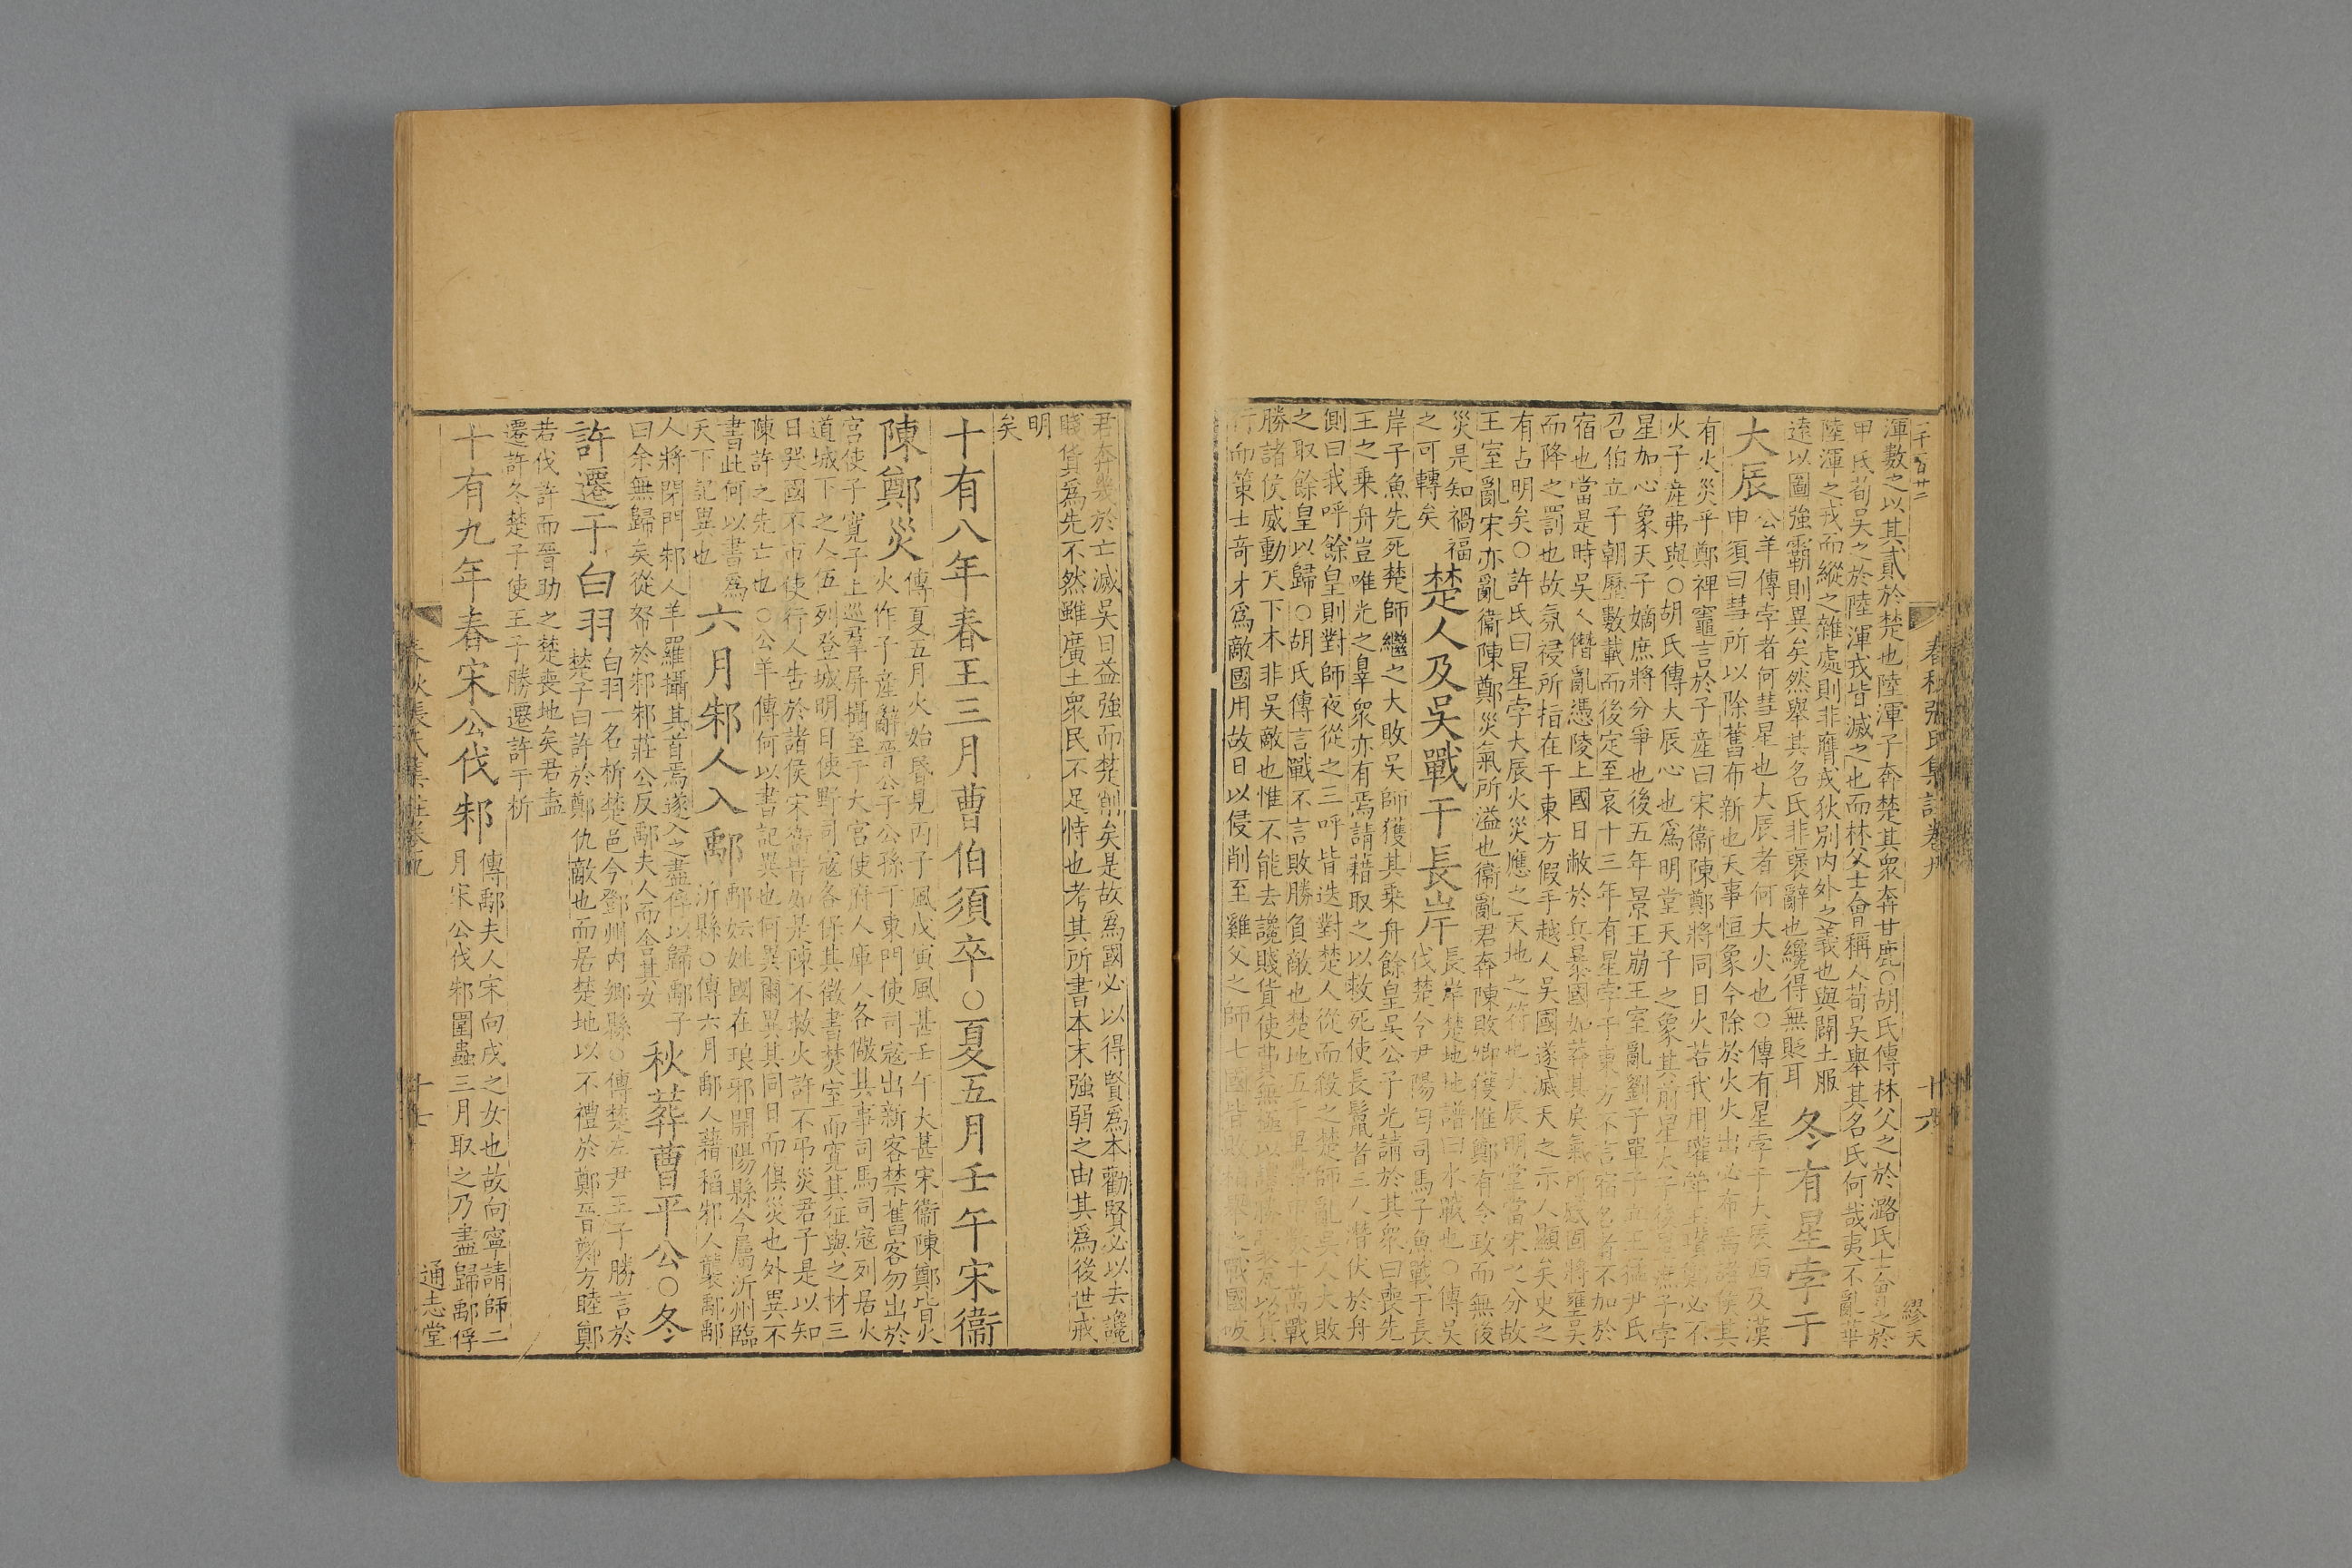 渾數之以其貳於楚也陸渾子奔楚其衆奔甘鹿○胡氏傳林父之於潞氏士會之於
甲氏荀吳之於陸渾戎皆滅之也而林父士會稱人荀吳舉其名氏何哉夷不亂華
陸渾之戎而縱之雜處則非膺戎狄別內外之義也與闢土服
遠以圖強霸則異矣然舉其名氏非褒辭也纔得無貶耳
冬有星孛于
大辰
公羊傳孛者何彗星也大辰者何大火也○傳有星孛于大辰西及漢
申須曰彗所以除舊布新也天事恒象今除於火火出必布焉諸侯其
有火災乎鄭裨竈言於子產曰宋衞陳鄭將同日火若我用瓘斝玉瓚鄭必不
火子產弗與○胡氏傳大辰心也爲明堂天子之象其前星太子後星庶子孛
星加心象天子嫡庶將分爭也後五年景王崩王室亂劉子單子立王猛尹氏
召伯立子朝歷數載而後定至哀十三年有星孛于東方不言宿名者不加於
宿也當是時吳人僭亂憑陵上國日敝於兵暴國如莽其戾氣所感固將壅吳
而降之罰也故氛祲所指在于東方假手越人吳國遂滅天之示人顯矣史之
有占明矣○許氏曰星孛大辰火災應之天地之符也大辰明堂當宋之分故
王室亂宋亦亂衞陳鄭災氣所溢也衞亂君奔陳敗卿獲惟鄭有令政而無後
災是知禍福
之可轉矣
楚人及吳戰于長岸
長岸楚地地譜曰水戰也○傳吳
伐楚令尹陽匄司馬子魚戰于長
岸子魚先死楚師繼之大敗吳師獲其乗舟餘皇吳公子光請於其衆曰喪先
王之乗舟豈唯光之辠衆亦有焉請藉取之以救死使長鬣者三人潛伏於舟
側曰我呼餘皇則對師夜從之三呼皆迭對楚人從而殺之楚師亂吳人大敗
之取餘皇以歸○胡氏傳言戰不言敗勝負敵也楚地五千里帶甲數十萬戰
勝諸侯威動天下本非吳敵也惟不能去讒賤貨使費無極以讒勝囊瓦以貨
行而策士奇才爲敵國用故日以侵削至雞父之師七國皆敗柏舉之戰國破
春秋張氏集註卷九
十六
君奔幾於亡滅吳日益強而楚削矣是故爲國必以得賢爲本勸賢必以去讒
賤貨爲先不然雖廣土衆民不足恃也考其所書本末強弱之由其爲後世戒
明
矣
十有八年春王三月曹伯須卒○夏五月壬午宋衞
陳鄭災
傳夏五月火始昏見丙子風戊寅風甚壬午大甚宋衞陳鄭皆火
火作子產辭晉公子公孫于東門使司寇出新客禁舊客勿出於
宮使子寛子上巡羣屏攝至于大宮使府人庫人各儆其事司馬司寇列居火
道城下之人伍列登城明日使野司寇各保其徵書焚室而寛其征與之材三
日哭國不市使行人告於諸侯宋衞皆如是陳不救火許不弔災君子是以知
陳許之先亡也○公羊傳何以書記異也何異爾異其同日而俱災也外異不
書此何以書爲
天下記異也
六月邾人入鄅
鄅妘姓國在琅邪開陽縣今屬沂州臨
沂縣○傳六月鄅人藉稻邾人襲鄅鄅
人將閉門邾人羊羅攝其首焉遂入之盡俘以歸鄅子
曰余無歸矣從帑於邾邾莊公反鄅夫人而舍其女
秋葬曹平公○冬
許遷于白羽
白羽一名析楚邑今鄧州內鄉縣○傳楚左尹王子勝言於
楚子曰許於鄭仇敵也而居楚地以不禮於鄭晉鄭方睦鄭
若伐許而晉助之楚喪地矣君盍
遷許冬楚子使王子勝遷許于析
十有九年春宋公伐邾
傳鄅夫人宋向戌之女也故向寧請師二
月宋公伐邾圍蟲三月取之乃盡歸鄅俘
春秋張氏集註卷九
十七
通志堂